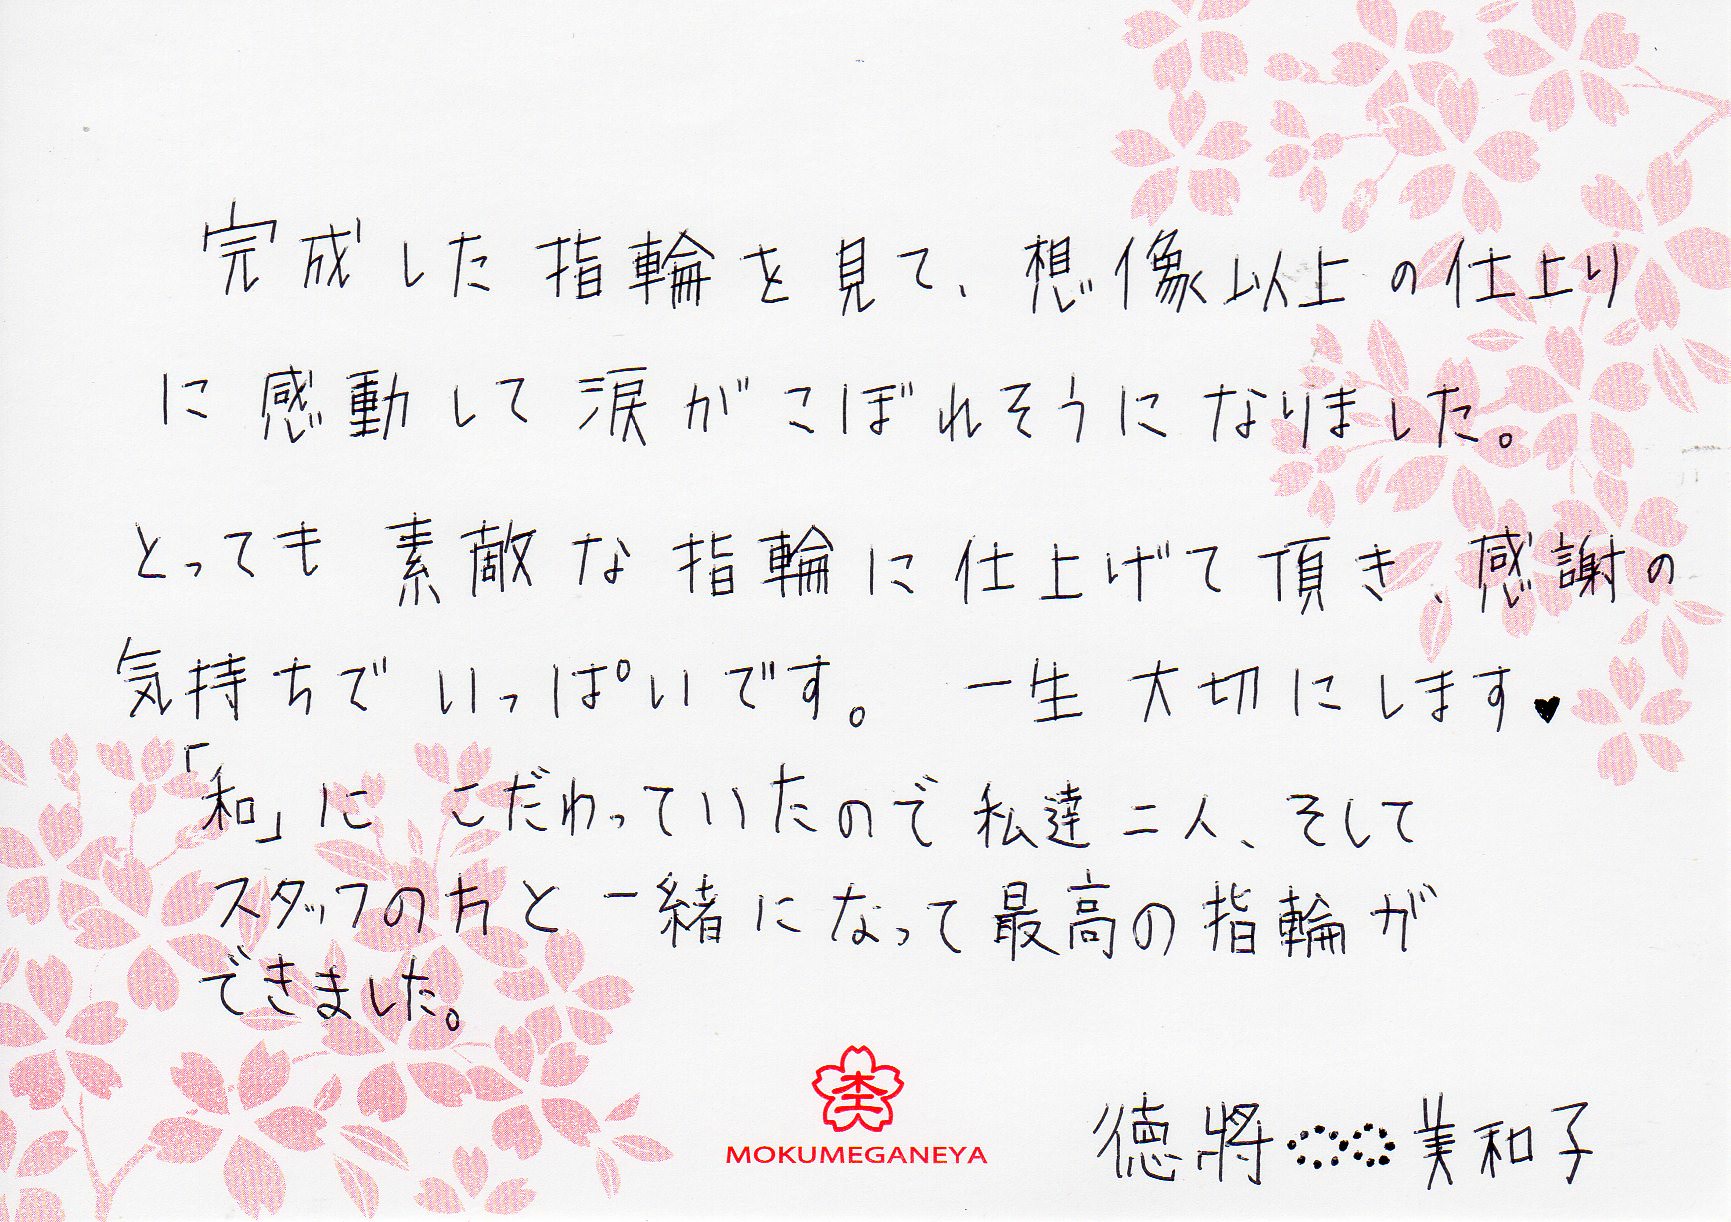 完成した指輪を見て、想像以上の仕上り
に感動して涙がこぼれそうになりました。
とっても素敵な指輪に仕上げて頂き、感謝の
気持ちでいっぱいです。 一生大切にします♥
「和」に こだわっていたので私達二人、そして
スタッフの方と一緒になって最高の指輪が
できました。
MOKUMEGANEYA
徳將 美和子